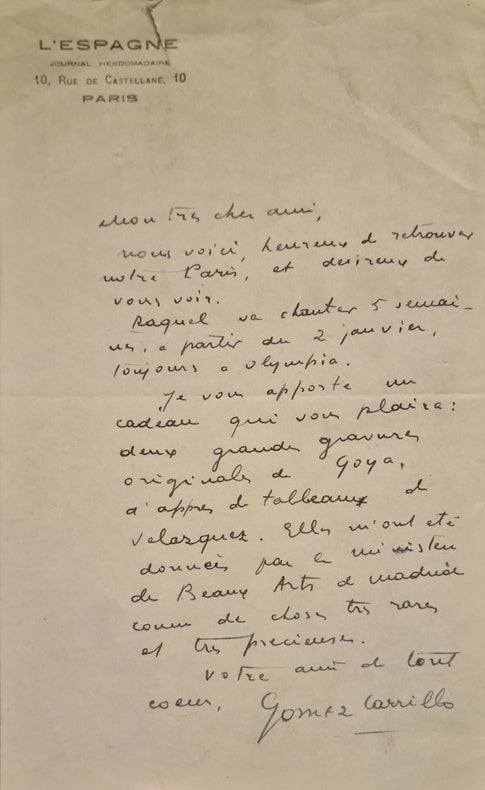 L'ESPAGNE
JOURNAL HEBDOMADAIRE
10, RUE DE CASTELLANE, 10
PARIS
Mon très cher ami,
nous voici, heureux d retrouver
notre Paris, et desireux de
vous voir.
Raquel va chanter 5 semai-
nes, a partir du 2 janvier,
toujours a olympia.
Je vous apporte un
cadeau qui vous plaira :
deux grandes gravures
originales de Goya,
d'apres de tableaux de
Velazquez. Elles m'ont eté
donnees par le ministere
de Beaux Arts de madrid
comme de choses tres rares
et tres precieuses.
Votre ami de tout
coeur, Gomez Carrillo